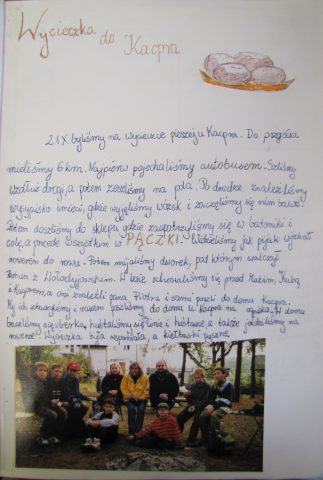 Wycieczka do Kacpra
2 IX. byliśmy na wycieczce pieszej u Kacpra. Do przejścia
mieliśmy 6 km. Najpierw pojechaliśmy autobusem. Szliśmy
wzdłuż drogi, a potem zeszliśmy na pola. Po drodze znaleźliśmy
wysypisko śmieci, gdzie wzięliśmy wózek i zaczęliśmy się nim bawić.
Potem doszliśmy do sklepu gdzie zaopatrzyliśmy się w batoniki i
colę, a przede wszystkim w PĄCZKI. Widzieliśmy jak pijak wjechał
rowerem do rowu. Potem mijaliśmy dworek, pod którym walczył
Bohun z Wołodyjowskim. W lesie schowaliśmy się przed Matim, Kubą
i Kacprem, a oni znaleźli pana Piotra i sami poszli do domu Kacpra.
My ich i razem poszliśmy do domu u Kacpra na ognisko. W domu
bawiliśmy się w berka, huśtaliśmy się na linie i huśtawce, a także jeździliśmy na
rowerze. Wycieczka była wspaniała, a kiełbaski pyszne.